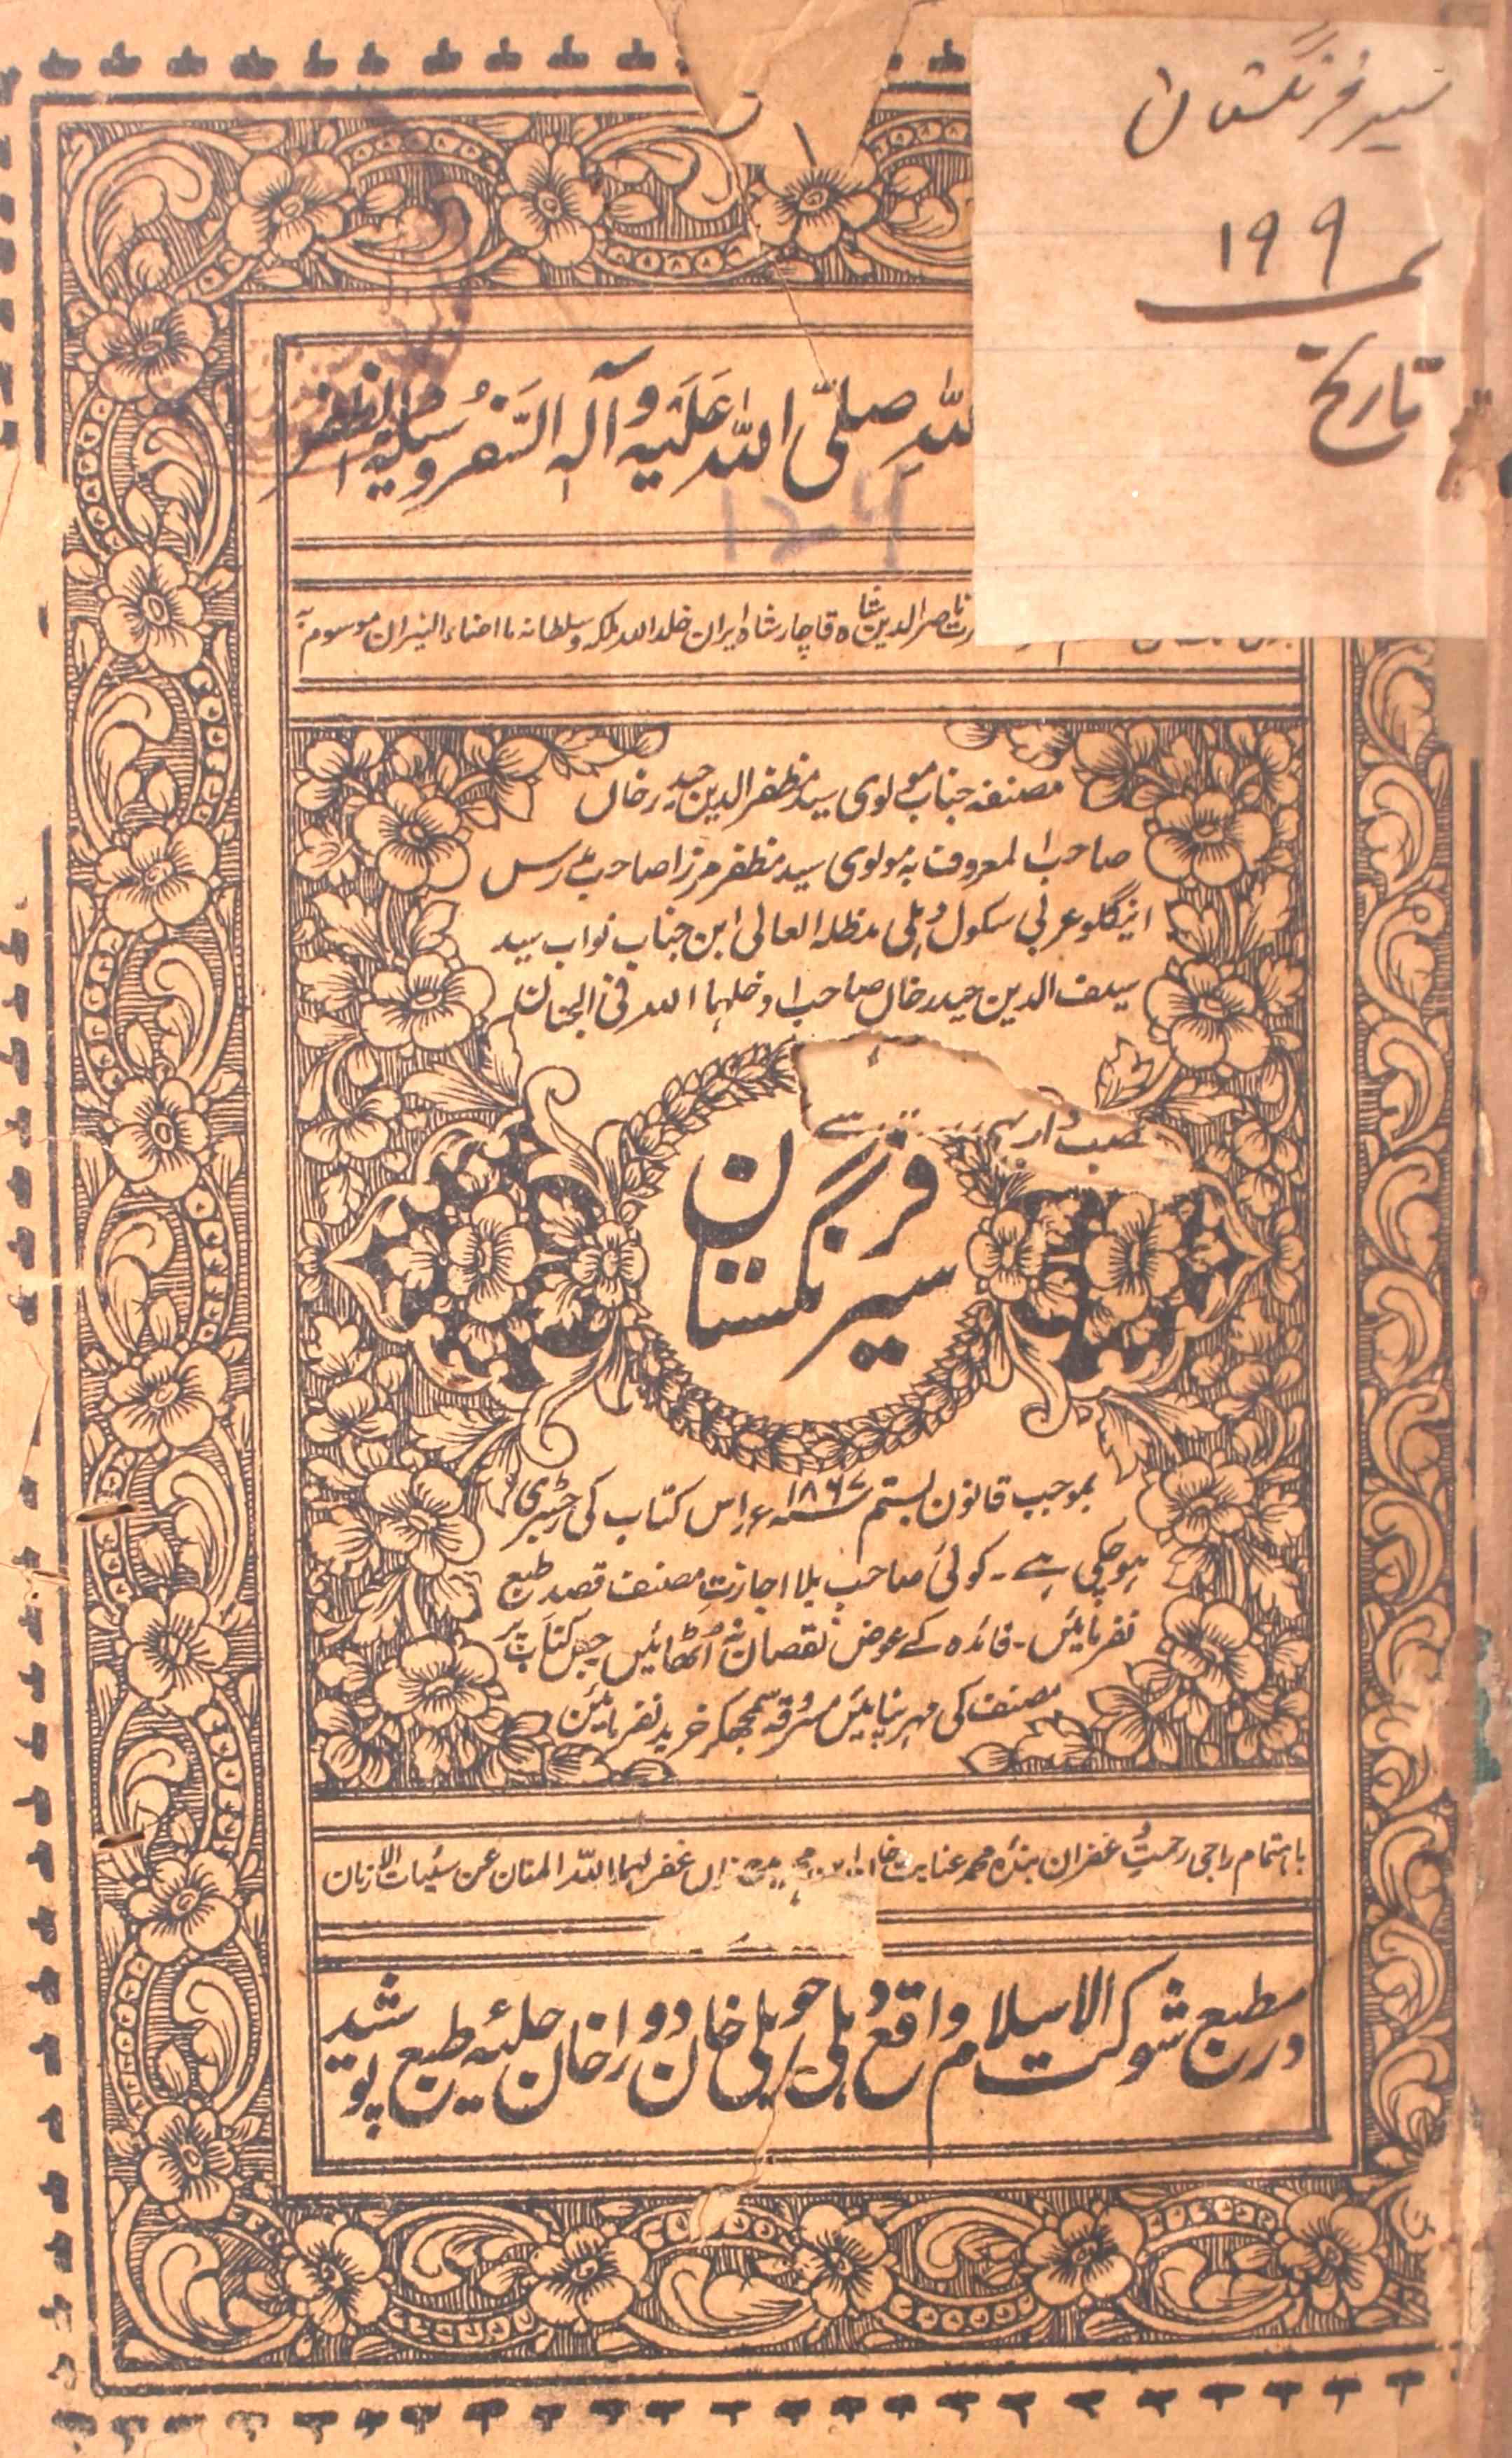 سیر فرنگستان
۱۹۹
تاریخ
صلی اللہ عَلَیْہِ و آلہ السَّفَرُ وسیلۃ الظفر
ناصر الدین شاہ قاچار شاہ ایران خلد اللہ ملکہ و سلطانہ ما اضاء النیران موسوم بہ
مصنفہ جناب مولوی سید مظفر الدین حیدر خاں
صاحب المعروف بہ مولوی سید مظفر مرزا صاحب مدرس
اینگلو عربی سکول دہلی مدظلہ العالی ابن جناب نواب سید
سیف الدین حیدر خاں صاحب ادخلہما اللہ فی الجنان
سیر فرنگستان
بموجب قانون بستم ۱۸۶۷ء اس کتاب کی رجسٹری
ہوچکی ہے ۔ کوئی صاحب بلا اجازتِ مصنف قصد طبع
نفرمائیں ۔ فائدہ کے عوض نقصان نہ اُٹھائیں جس کتاب پر
مصنف کی مہر نپائیں مسرُوقہ سمجھکر خرید نفرمائیں
باہتمام راجی رحمت غفران بندہ محمد عنایت غفر لہما اللہ المنان عن سئیات الازمان
در مطبع شوکت الاسلام واقع دہلی حویلی خان دوراخان حلیۂ طبع پوشید